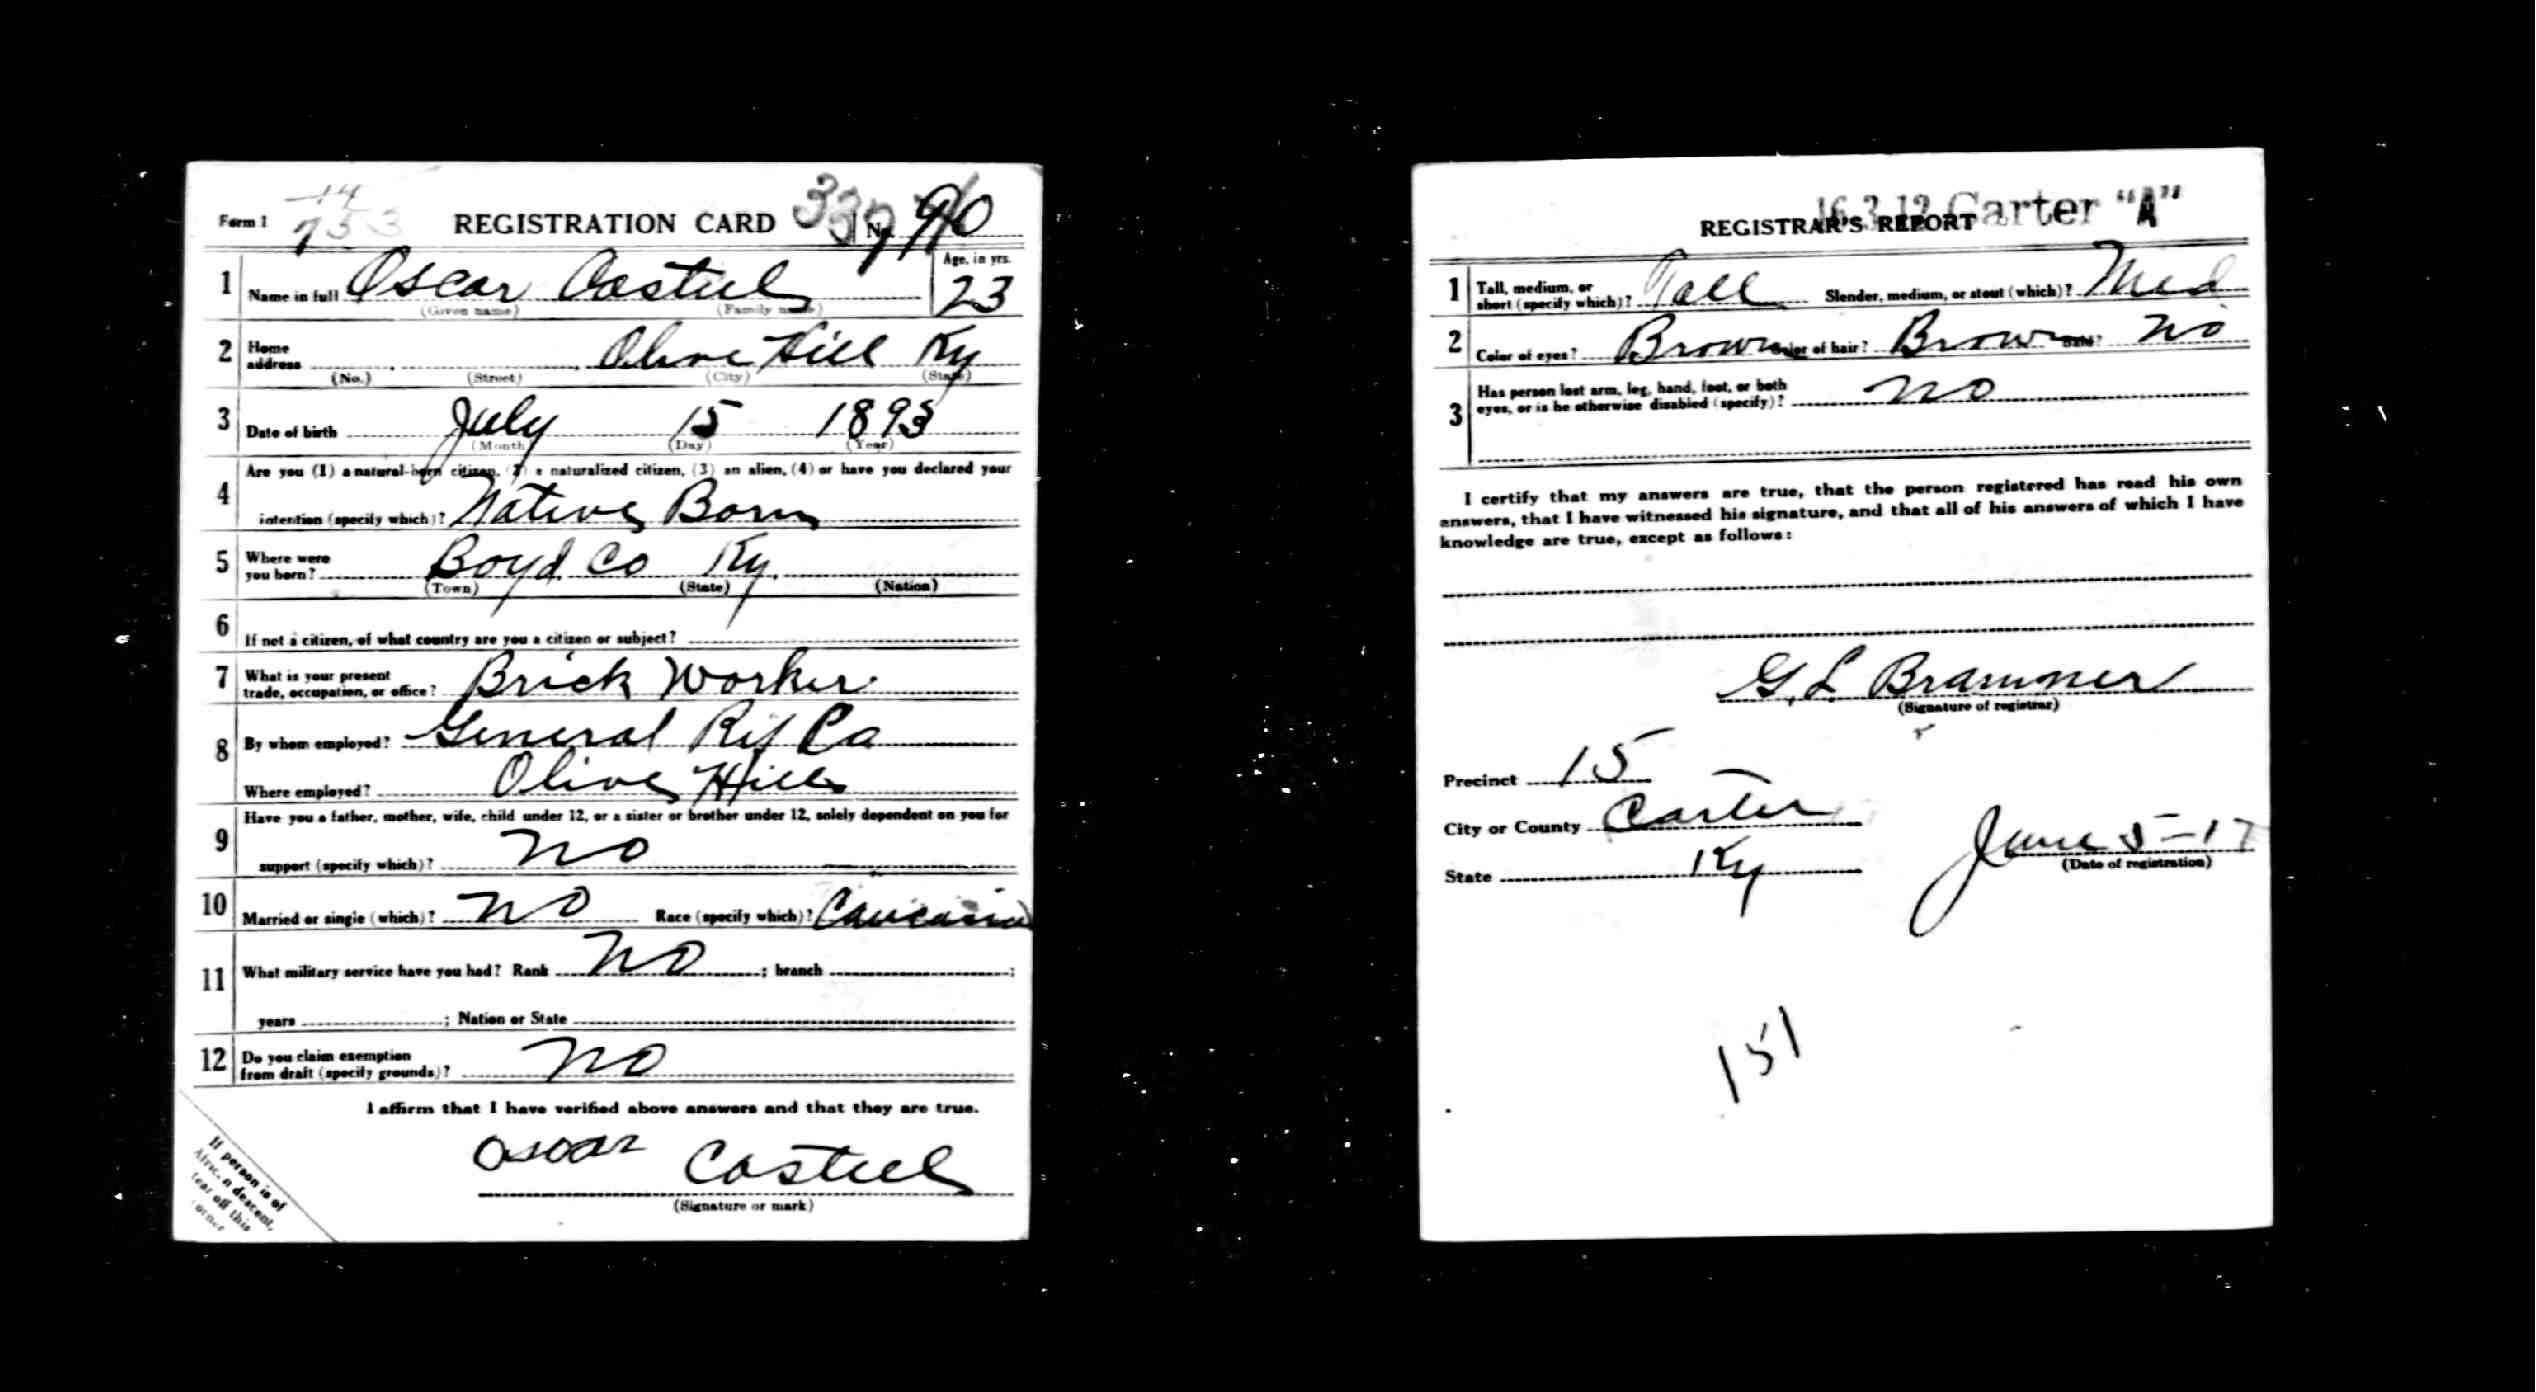 Form 1 REGISTRATION CARD No. 90
1 Name in full Oscar Casteel Age, in yrs. 23
(Given name) (Family name)
2 Home address Olive Hill Ky
(No.) (Street) (City) (State)
3 Date of birth July 15 1893
(Month) (Day) (Year)
4 Are you (1) a natural-born citizen, (2) a naturalized citizen, (3) an alien, (4) or have you declared your
intention (specify which)? Native Born
5 Where were you born? Boyd Co Ky.
(Town) (State) (Nation)
6 If not a citizen, of what country are you a citizen or subject?
7 What is your present
trade, occupation, or office? Brick Worker
8 By whom employed? General Rif Co
Where employed? Olive Hill
9 Have you a father, mother, wife, child under 12, or a sister or brother under 12, solely dependent on you for
support (specify which)? No
10 Married or single (which)? No Race (specify which)? Caucasian
11 What military service have you had? Rank No ; branch ;
years ; Nation or State
12 Do you claim exemption
from draft (specify grounds)? No
I affirm that I have verified above answers and that they are true.
Oscar Casteel
(Signature or mark)
If person is of
African descent,
tear off this
corner
16-3-12 Carter "A"
REGISTRAR'S REPORT
1 Tall, medium, or
short (specify which)? Tall Slender, medium, or stout (which)? Med
2 Color of eyes? Brown Color of hair? Brown Bald? No
3 Has person lost arm, leg, hand, foot, or both
eyes, or is he otherwise disabled (specify)? No
I certify that my answers are true, that the person registered has read his own
answers, that I have witnessed his signature, and that all of his answers of which I have
knowledge are true, except as follows:
G. L. Brammer
(Signature of registrar)
Precinct 15
City or County Carter
State Ky
June 5-17
(Date of registration)
151